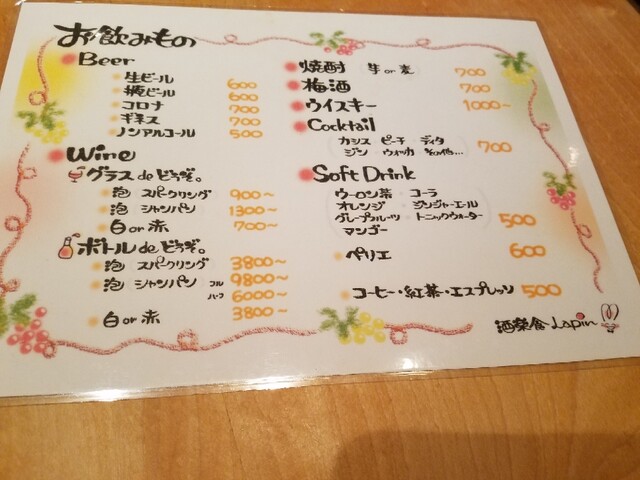 お飲みもの
Beer
生ビール 600
瓶ビール 600
コロナ 700
ギネス 700
ノンアルコール 500
Wine
グラス de どうぞ。
泡 スパークリング 900～
泡 シャンパン 1300～
白 or 赤 700～
ボトル de どうぞ。
泡 スパークリング 3800～
泡 シャンパン フル 9800～
ハーフ 6000～
白 or 赤 3800～
焼酎 芋 or 麦 700
梅酒 700
ウイスキー 1000～
Cocktail
カシス ピーチ ディタ
ジン ウォッカ その他... 700
Soft Drink
ウーロン茶 コーラ
オレンジ ジンジャーエール
グレープフルーツ トニックウォーター 500
マンゴー
ペリエ 600
コーヒー・紅茶・エスプレッソ 500
酒菜食 Lapin